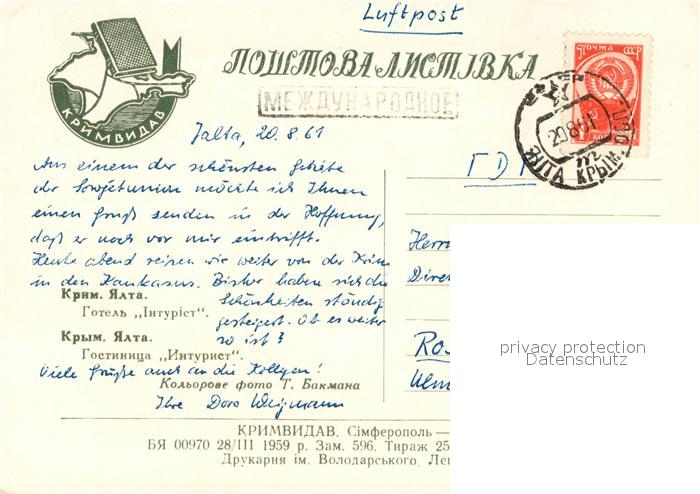 Luftpost
ПОШТОВА ЛИСТІВКА
МЕЖДУНАРОДНОЕ
КРИМВИДАВ
Почта СССР
20861
ЯЛТА КРЫМ
Jalta, 20.8.61
Aus einem der schönsten Gebiete
der Sowjetunion möchte ich Ihnen
einen Gruß senden in der Hoffnung,
daß er noch vor mir eintrifft.
Heute abend reisen wir weiter von der Krim
in den Kaukasus. Bisher haben sich die
Schönheiten ständig
gesteigert. Ob es weiter
so ist?
Viele Grüße auch an die Kollegen!
Ihre Dora
Крим. Ялта.
Готель „Інтуріст".
Крым. Ялта.
Гостиница „Интурист".
Кольорове фото Т. Бакмана
ГДР
Herrn
Direk
Ros
КРИМВИДАВ. Сімферополь —
БЯ 00970 28/III 1959 р. Зам. 596. Тираж 25
Друкарня ім. Володарського. Лен
privacy protection
Datenschutz